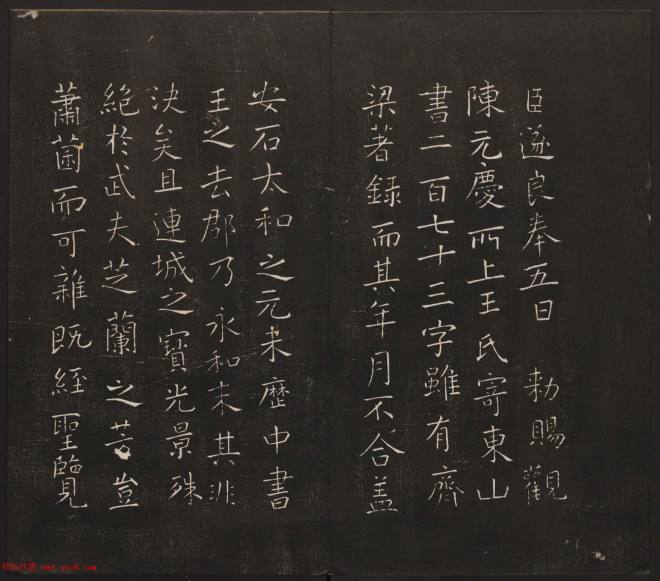 臣遂良奉五日　勅賜觀
陳元慶所上王氏寄東山
書二百七十三字雖有齊
梁著録而其年月不合盖
安石太和之元未歷中書
王之去郡乃永和末其非
決矣且連城之寶光景殊
絶於武夫芝蘭之芳豈
蕭茵而可雜既經聖覽
书法欣赏 www.yac8.com